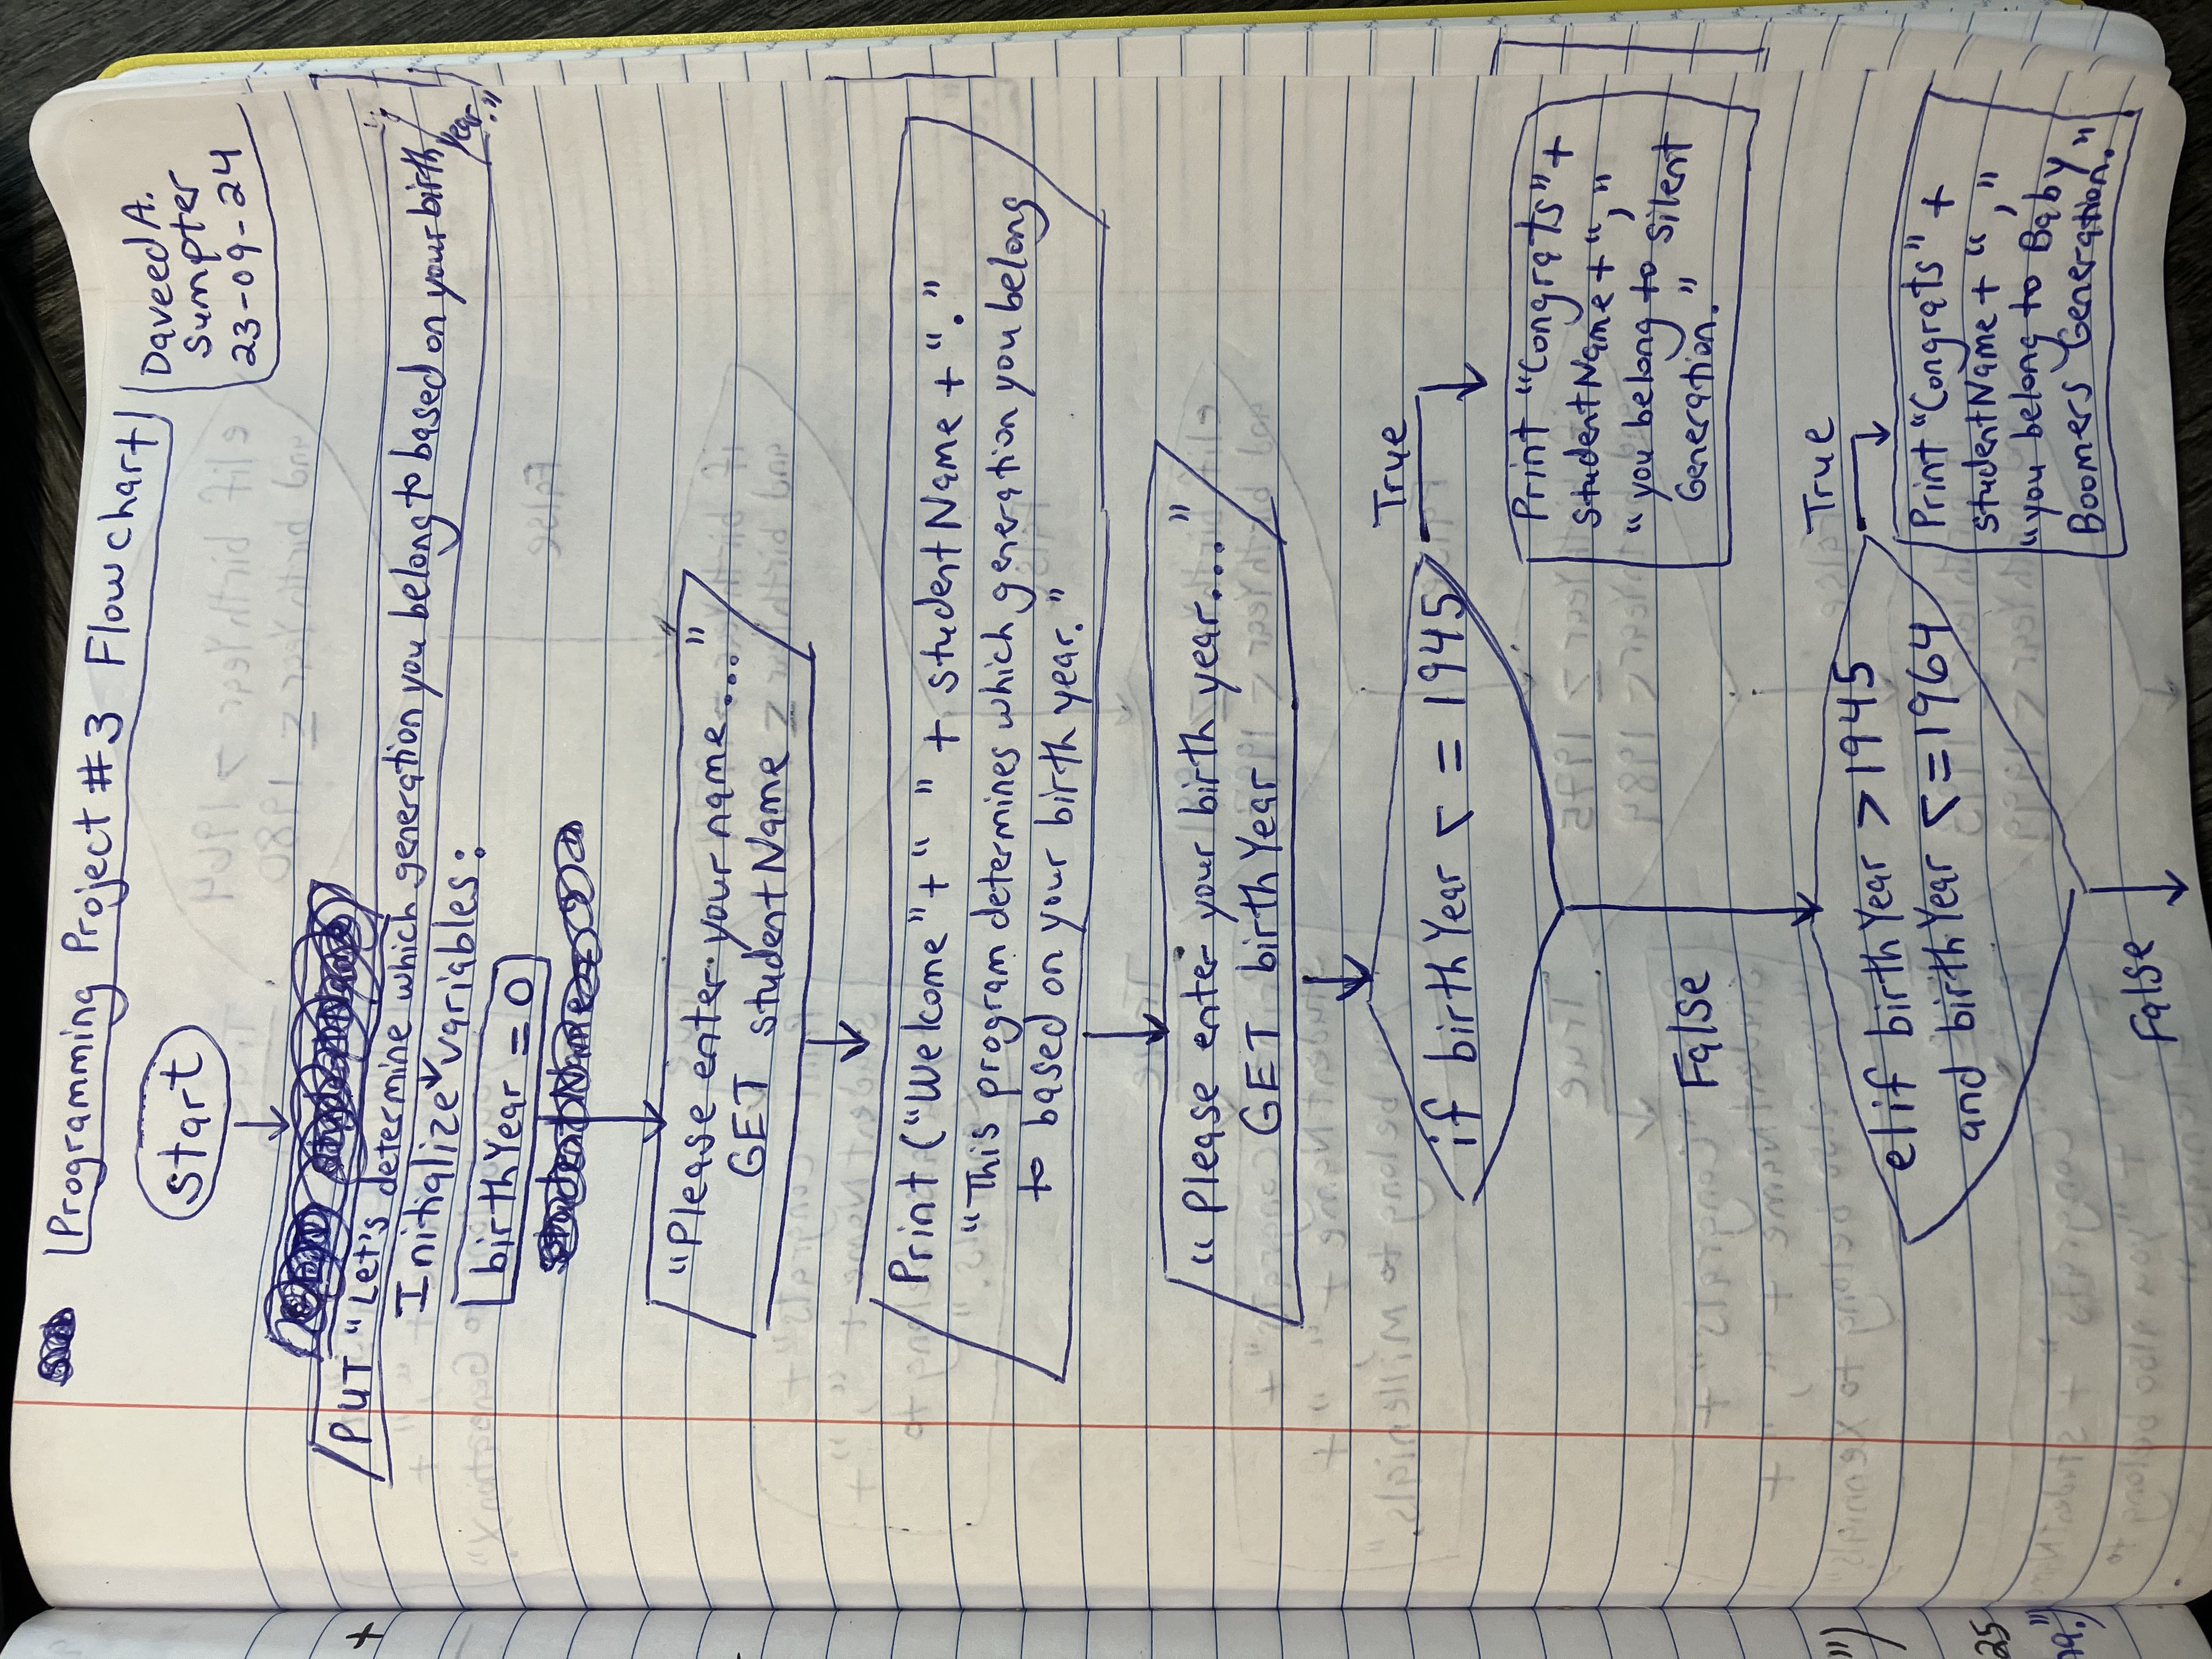 Programming Project #3 Flowchart
Daveed A.
Sumpter
23-09-24
start
PUT "Let's determine which generation you belong to based on your birth year."
Initialize variables:
birthYear = 0
"Please enter your name..."
GET studentName
Print ("Welcome"+" " + studentName + "."
"This program determines which generation you belong
to based on your birth year."
"Please enter your birth year..."
GET birthYear
if birthYear < = 1945
True
Print "Congrats" +
studentName + ","
"you belong to Silent
Generation."
False
elif birthYear > 1945
and birthYear <= 1964
True
Print "Congrats" +
studentName + ","
"you belong to Baby
Boomers Generation."
False
+
")
25